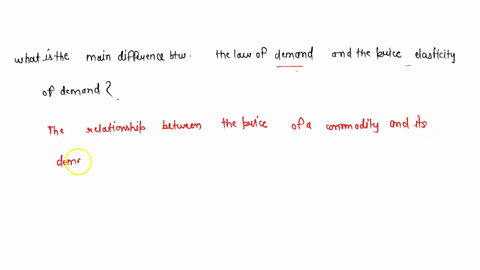 what is the main difference btw. the law of demand and the price elasticity
of demand ?.
The relationship between the price of a commodity and its
dema